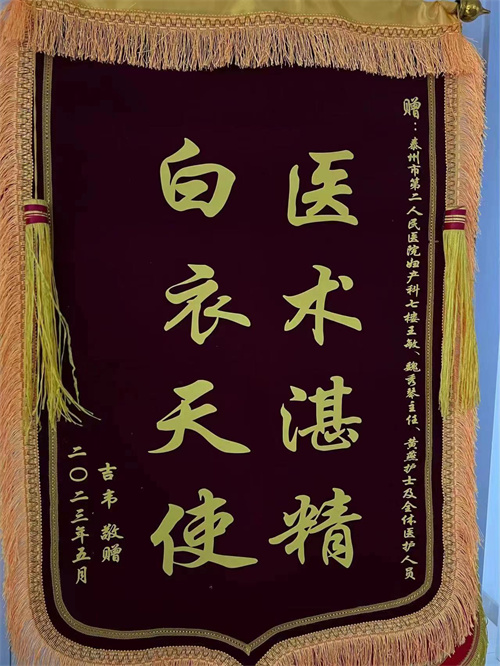 赠：泰州市第二人民医院妇产科七楼王敏、魏秀琴主任、黄燕护士及全体医护人员
医术湛精
白衣天使
吉韦 敬赠
二〇二三年五月